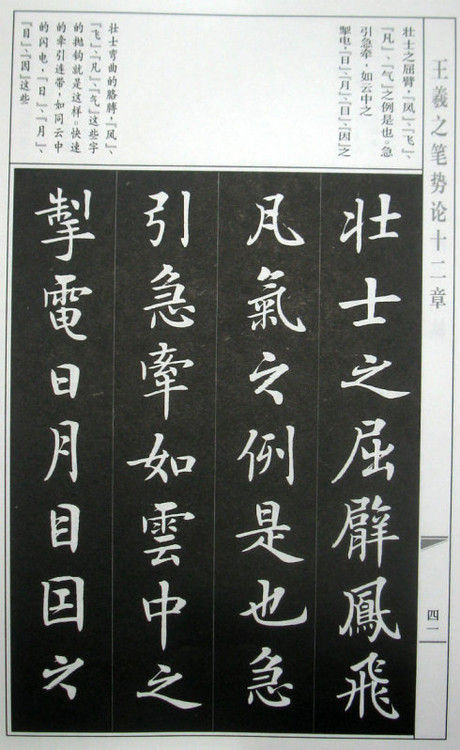 王羲之笔势论十二章
四一
壮士之屈臂，『凤』、『飞』、
『凡』、『气』之例是也。急
引急牵，如云中之
掣电，『日』、『月』、『目』、『因』之
壮士弯曲的胳膊，『凤』、
『飞』、『凡』、『气』这些字
的抛钩就是这样。快速
的牵引连带，如同云中
的闪电，『日』、『月』、
『目』、『因』这些
壯士之屈臂鳳飛
凡氣之例是也急
引急牽如雲中之
掣電日月目因之